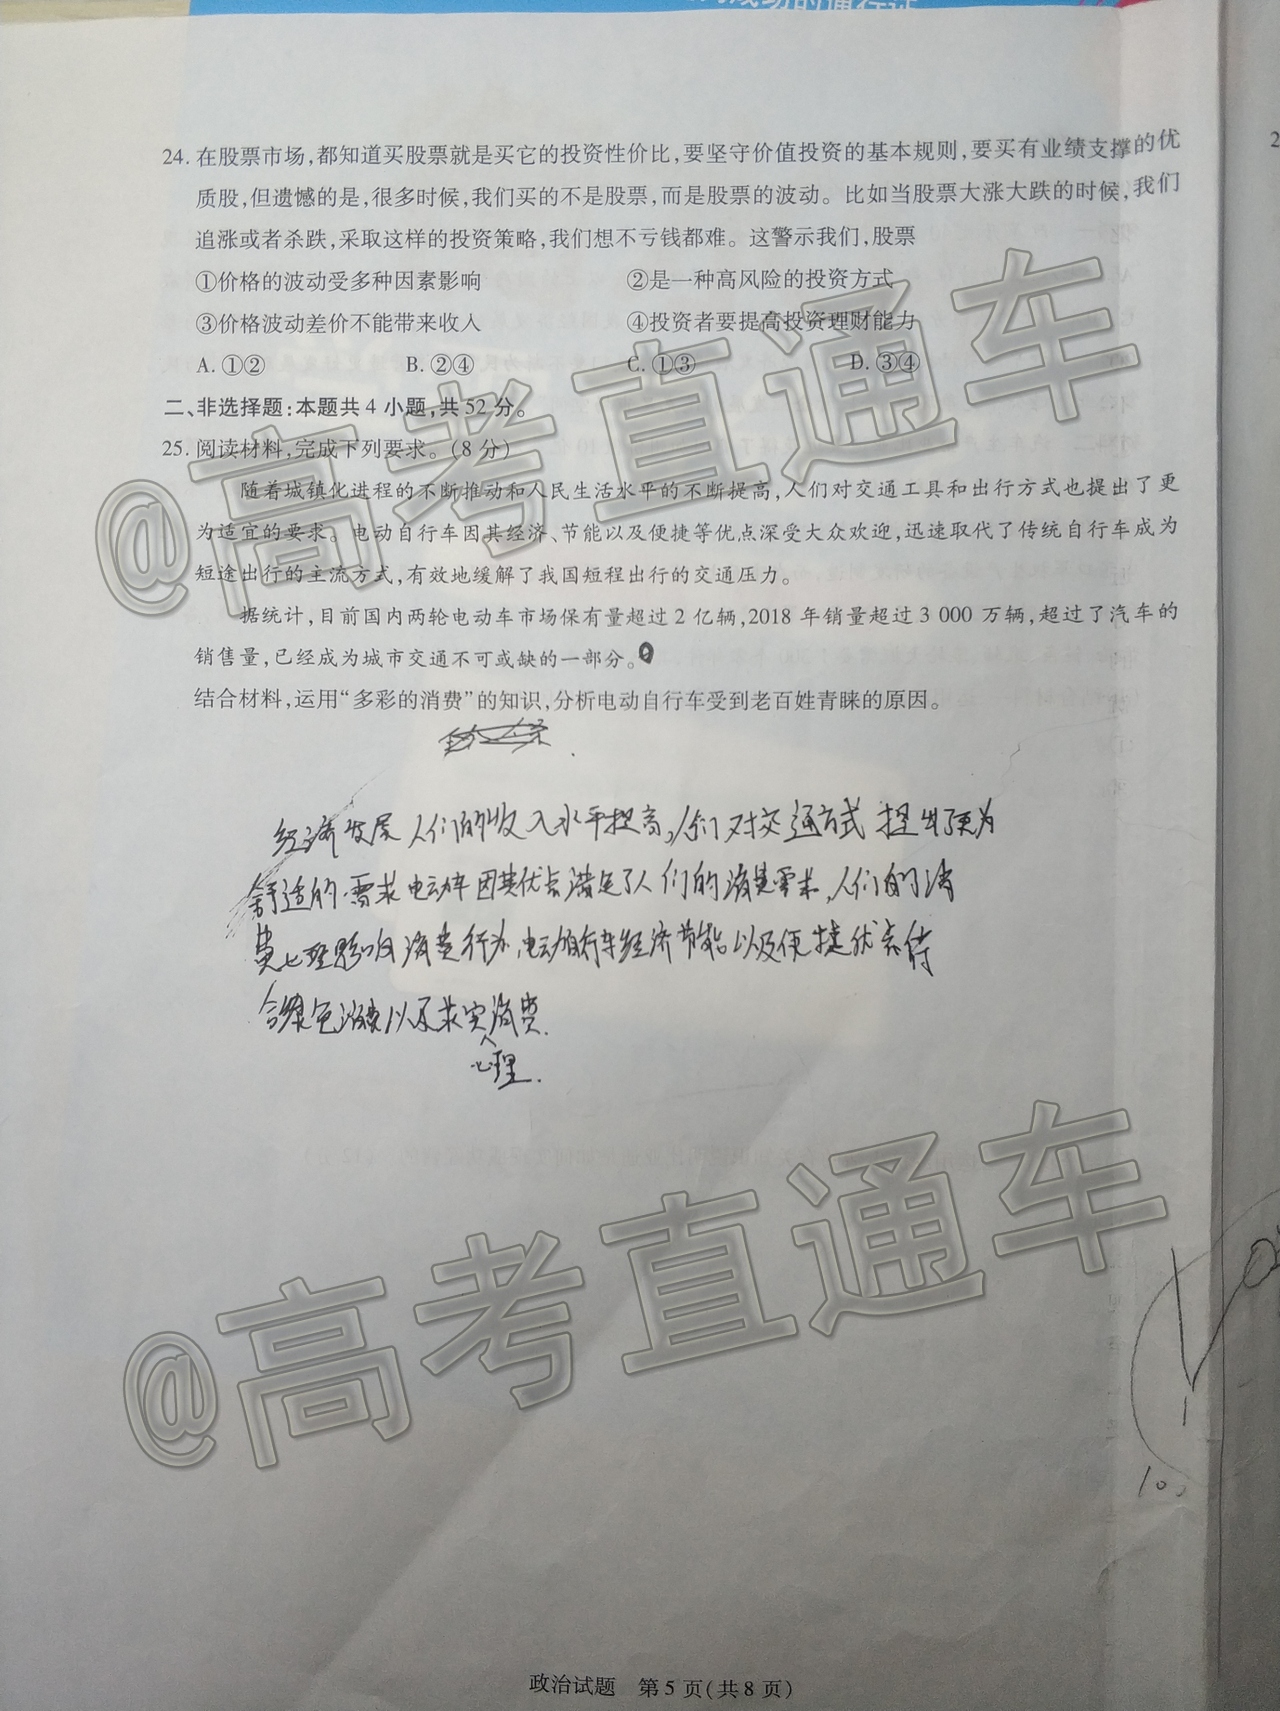 的通行证
24. 在股票市场,都知道买股票就是买它的投资性价比,要坚守价值投资的基本规则,要买有业绩支撑的优
质股,但遗憾的是,很多时候,我们买的不是股票,而是股票的波动。比如当股票大涨大跌的时候,我们
追涨或者杀跌,采取这样的投资策略,我们想不亏钱都难。这警示我们,股票
①价格的波动受多种因素影响 ②是一种高风险的投资方式
③价格波动差价不能带来收入 ④投资者要提高投资理财能力
A. ①② B. ②④ C. ①③ D. ③④
二、非选择题:本题共 4 小题,共 52 分。
25. 阅读材料,完成下列要求。(8 分)
随着城镇化进程的不断推动和人民生活水平的不断提高,人们对交通工具和出行方式也提出了更
为适宜的要求。电动自行车因其经济、节能以及便捷等优点深受大众欢迎,迅速取代了传统自行车成为
短途出行的主流方式,有效地缓解了我国短程出行的交通压力。
据统计,目前国内两轮电动车市场保有量超过 2 亿辆,2018 年销量超过 3 000 万辆,超过了汽车的
销售量,已经成为城市交通不可或缺的一部分。
结合材料,运用“多彩的消费”的知识,分析电动自行车受到老百姓青睐的原因。
经济发展人们的收入水平提高,人们对交通方式提出了更为
舒适的需求电动车因其优点满足了人们的消费需求,人们的消
费心理影响消费行为,电动自行车经济节能以及便捷优点符
合绿色消费以及求实消费.
心理.
@高考直通车
@高考直通车
100
政治试题 第 5 页(共 8 页)